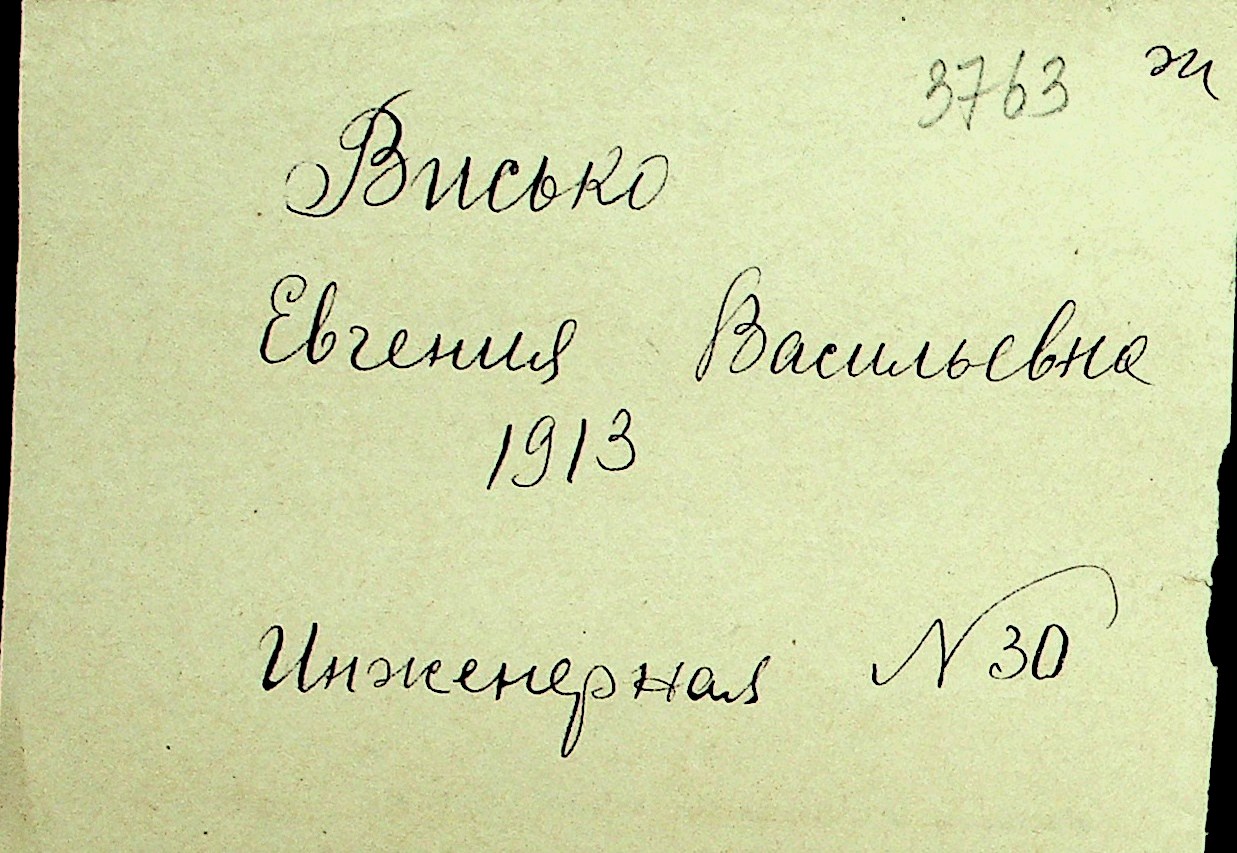 3763 ж
Висько
Евгения Васильевна
1913
Инженерная N 30